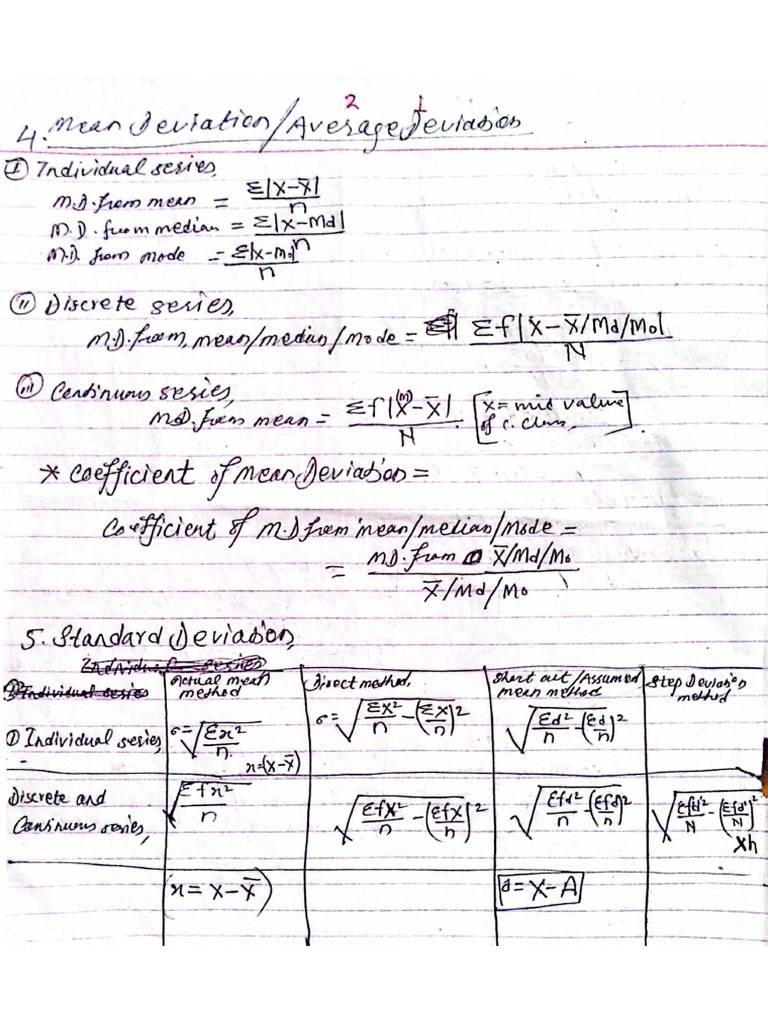 2 1
4. Mean Deviation/Average Deviation
I Individual series,
M.D. from mean = Σ|X-X̄|/n
M.D. from median = Σ|X-Md|/n
M.D. from mode = Σ|x-Mo|/n
II Discrete series,
M.D. from, mean/median/mode = Σf|X-X̄/Md/Mo|/N
III Continuous series,
MD. from mean = Σf|X(m)-X̄|/N. [X = mid value of C. Class,].
* Coefficient of mean Deviation =
Coefficient of M.D from mean/median/mode =
= MD. from X̄/Md/Mo
X̄/Md/Mo
5. Standard Deviation,
Individual series
Individual series | Actual mean method | Direct method, | Short cut/Assumed mean method | Step Deviation method
① Individual series, | σ = √(Σx²/n.) x=(X-X̄) | σ = √(ΣX²/n - (ΣX/n)²) | √(Σd²/n - (Σd/n)²)
Discrete and Continuous series, | √(Σfx²/n) | √(ΣfX²/n - (ΣfX/n)²) | √(Σfd²/n - (Σfd/n)²) | √(Σfd'²/N - (Σfd'/N)²) Xh
(x = X-X̄) | d = X-A